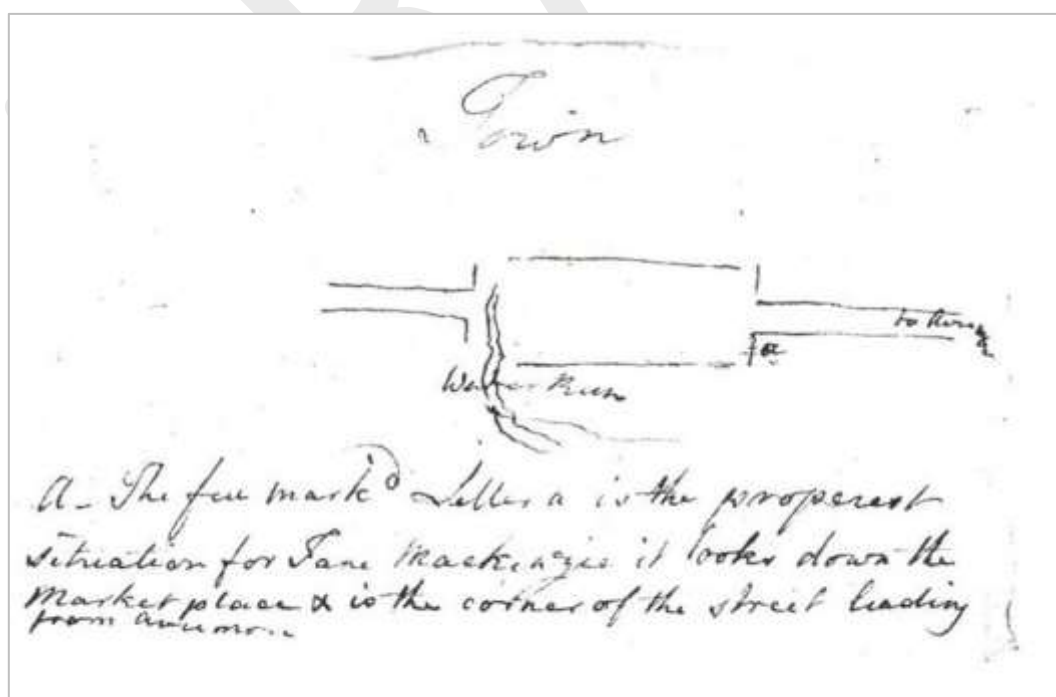 Town
to the
a
Water Run
A - The feu mark'd Letter a is the properest
situation for Jane Mackenzie it looks down the
Market place & is the corner of the street leading
from